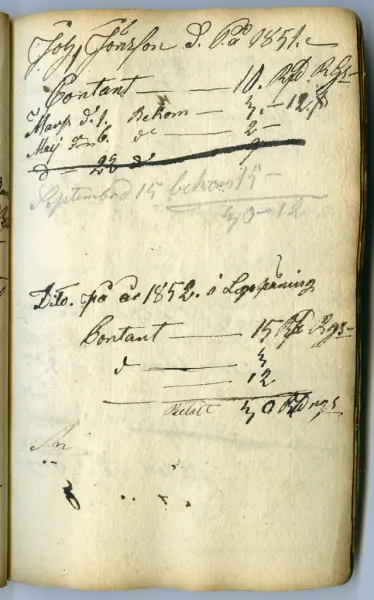 Joh Jonsson d. På 1851.
Contant — 10. Rd. Rgs
Mars d. 1. Bekom — 3. — 12 s
Maij den 6. do — 2 —
d — 28 do 9
September d 15 bekom 15 —
30 — 12
Dito. på år 1852. i Löpspäning
Contant — 15 Rd Rgs
d — 3
— 12
Betalt 30 Rdrgs